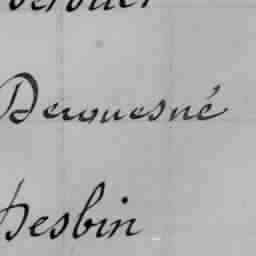 Derouesné
Desbin